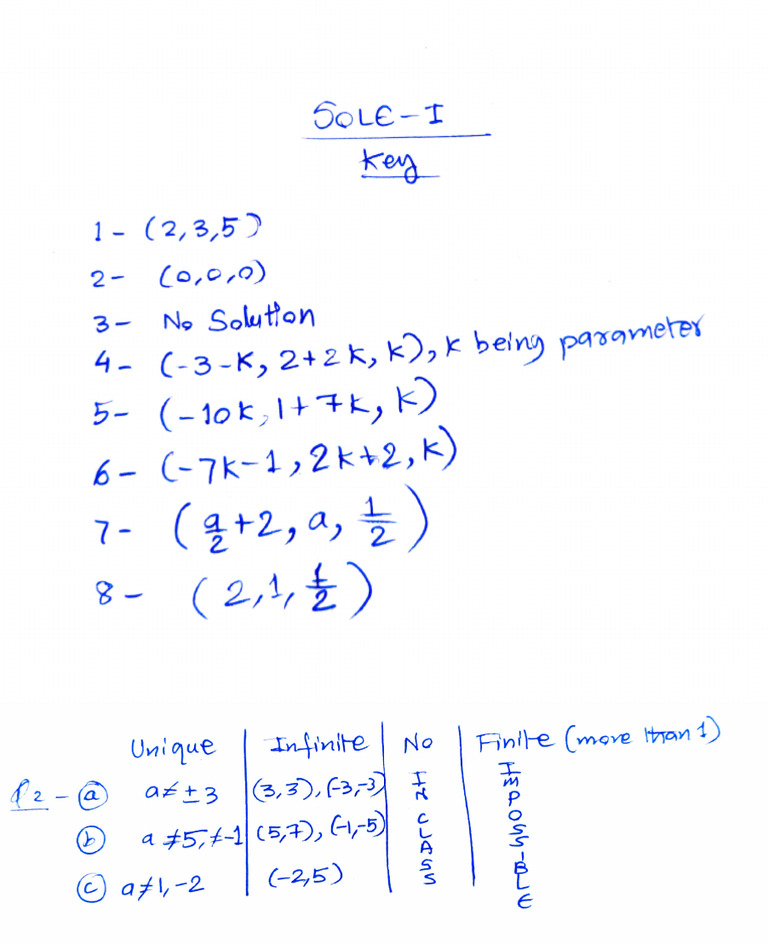 SOLE-I
Key
1- (2,3,5)
2- (0,0,0)
3- No Solution
4- (-3-K, 2+2K, K), K being parameter
5- (-10K, 1+7K, K)
6- (-7K-1, 2K+2, K)
7- (a/2+2, a, 1/2)
8- (2,1,1/2)
Unique | Infinite | No | Finite (more than 1)
P2 - (a) a≠±3 | (3,3), (-3,-3) | IN CLASS | IMPOSSIBLE
(b) a≠5, ≠-1 | (5,7), (-1,-5)
(c) a≠1,-2 | (-2,5)